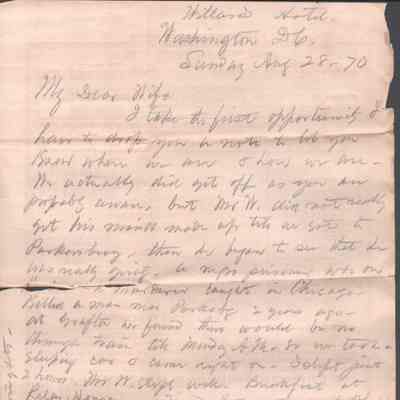 Willard Hotel
Washington D.C.
Sunday Aug 28. 70
My Dear Wife
I take the first opportunity I
have to drop you a note to let you
know where we are & how we are.
We actually did get off as you are
probably aware, but Mr W. did not really
get his mind made up till we got to
Parkersburg, then he began to see that he
was really going. A negro prisoner was on
murderer caught in Chicago
Killed a man near Parkersbg 2 years ago.
At Grafton we found there would be no
through train till Monday A.M. So we took a
sleeping car & came right on. I slept just
2 hours. Mr W. slept well. Breakfast at